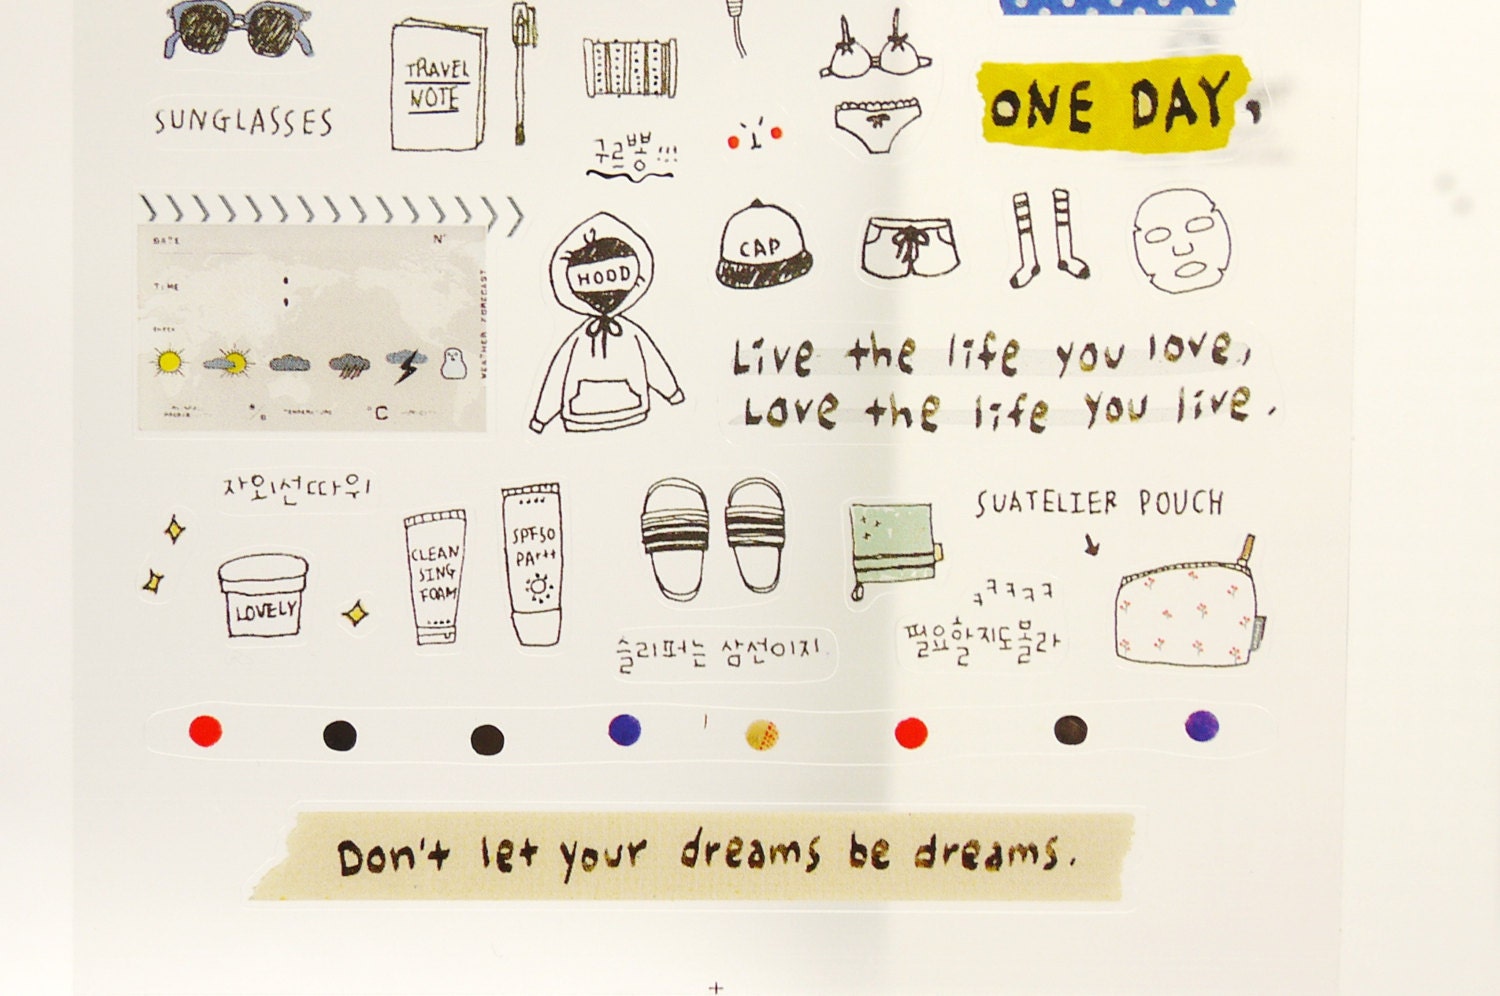 TRAVEL
NOTE
SUNGLASSES
구르뽕!!!
ONE DAY,
DATE
N°
TIME
:
WEATHER FORECAST
TEMPERATURE
°C
HOOD
CAP
Live the life you love,
Love the life you live.
자외선따위
LOVELY
CLEAN
SING
FOAM
SPF50
PA+++
슬리퍼는 삼선이지
SUATELIER POUCH
ㅋㅋㅋㅋㅋ
필요할지도몰라
Don't let your dreams be dreams.